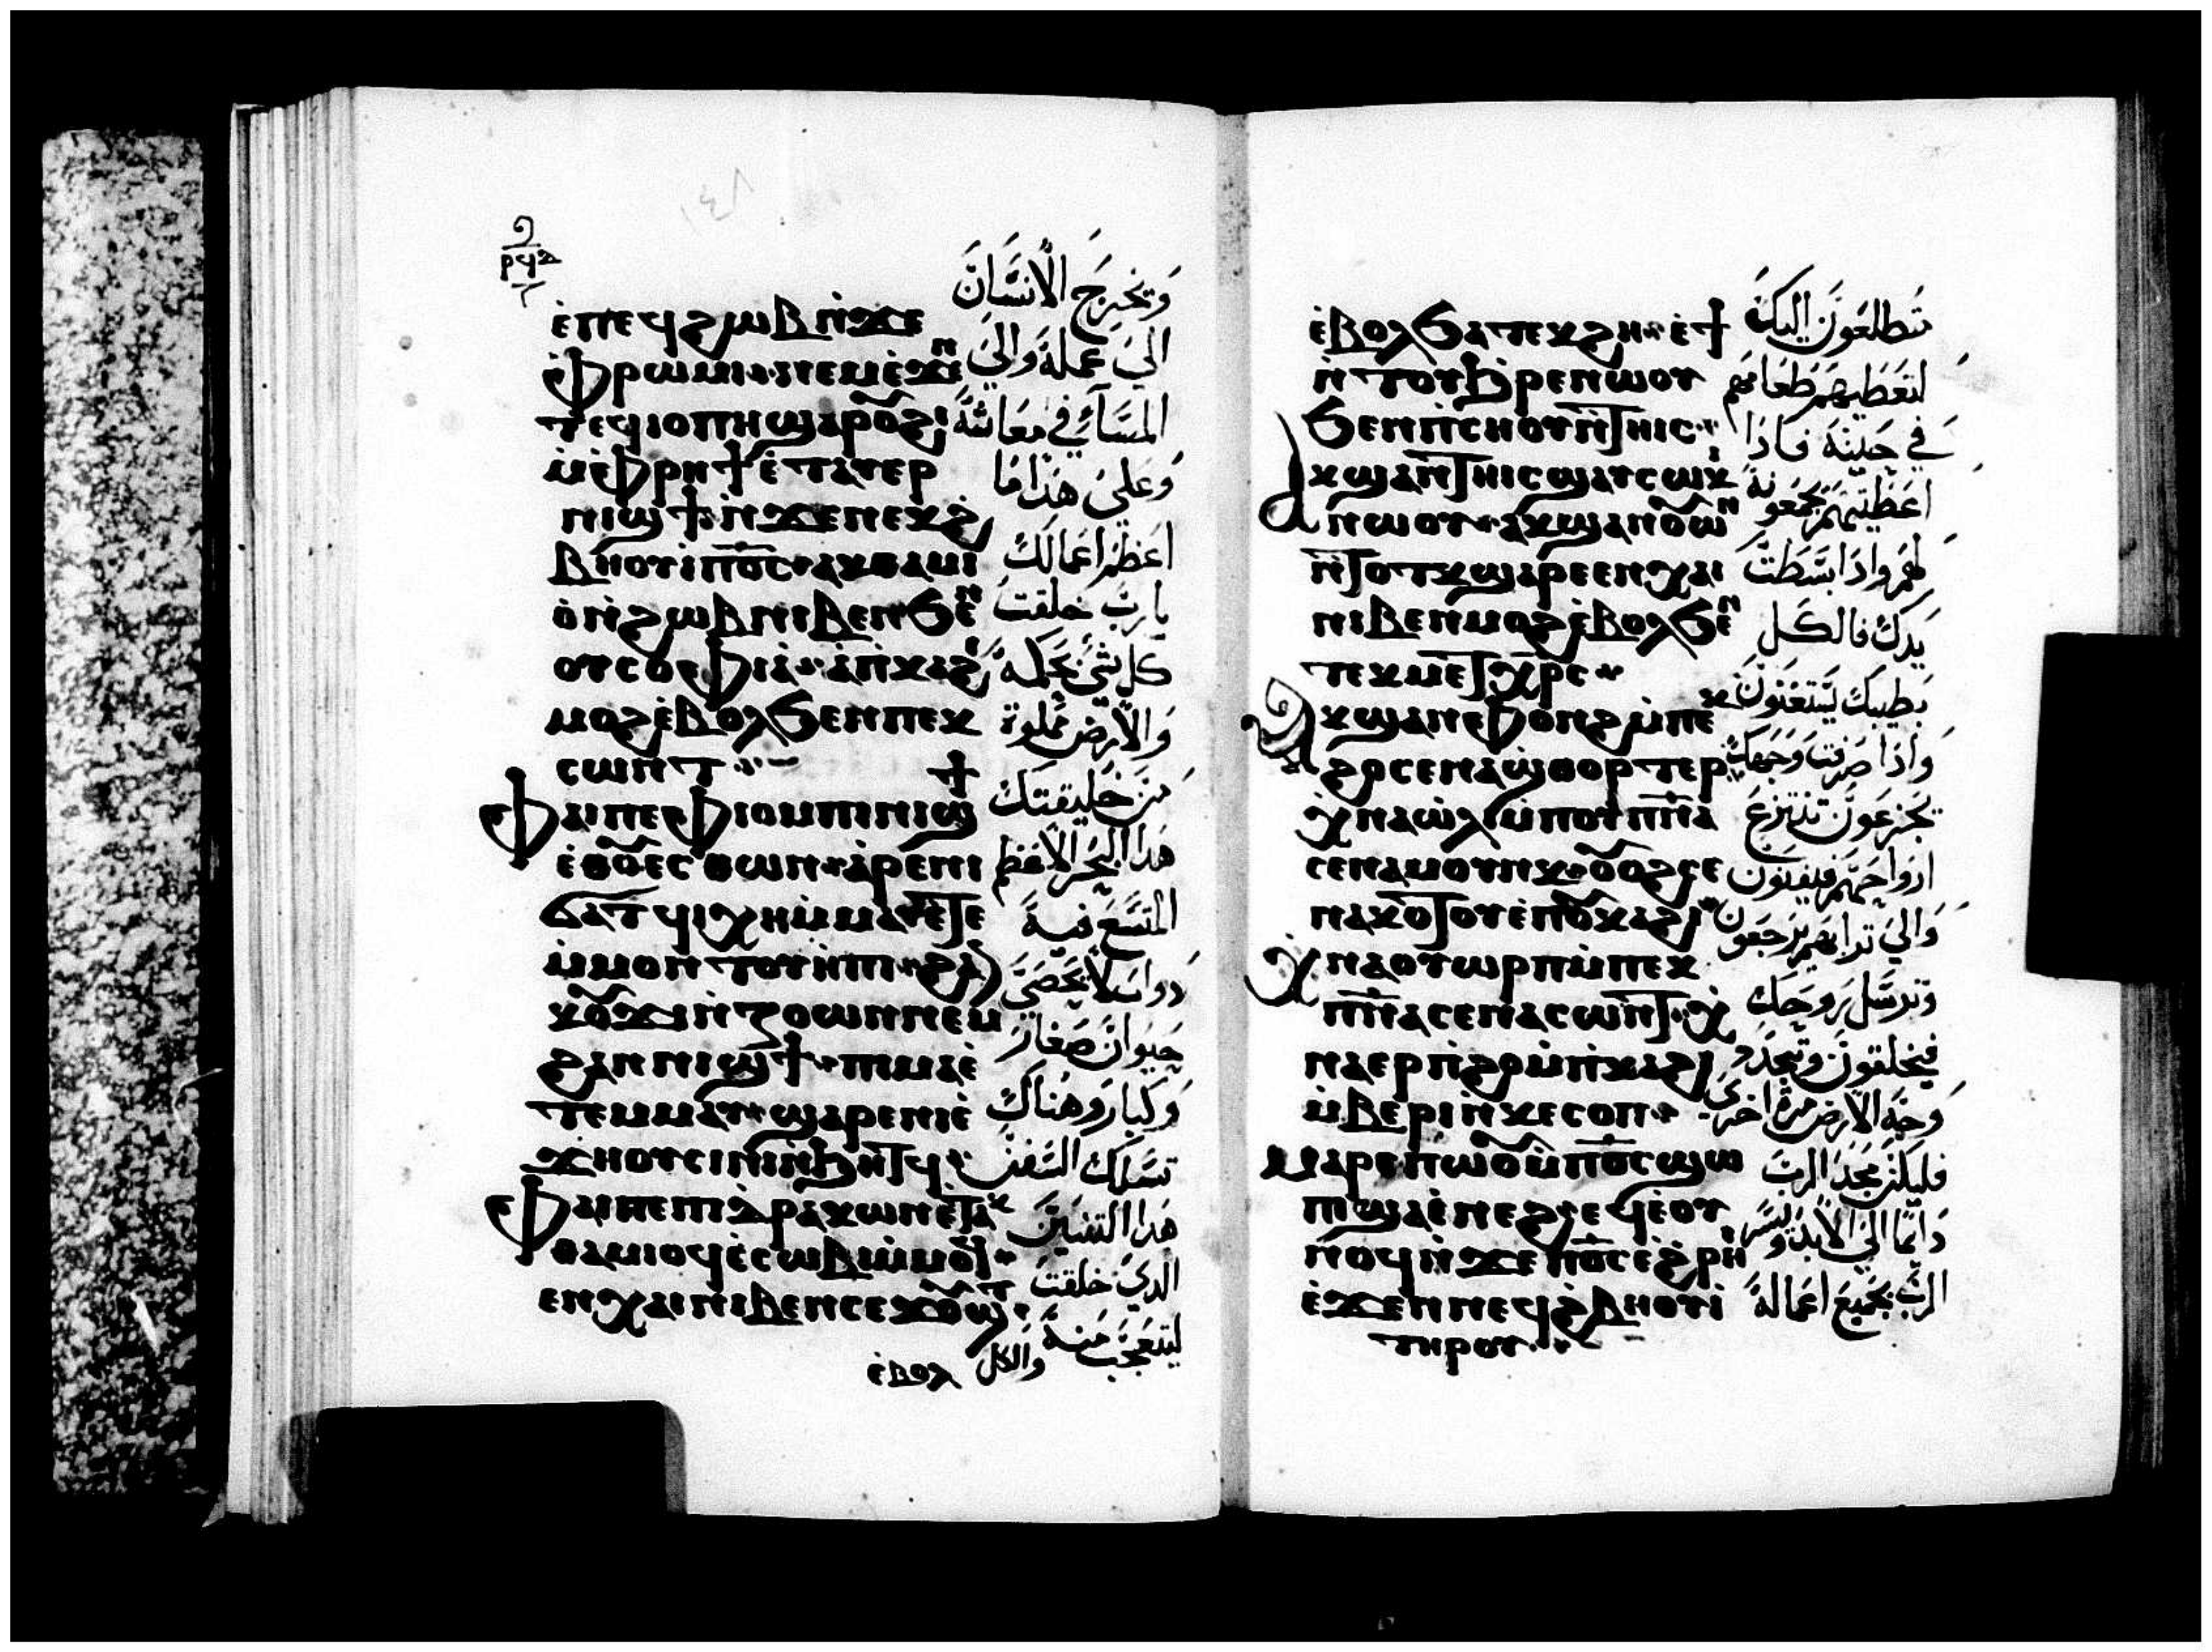 ⲣϥⲇ
ⲉ̇ⲡⲉϥϩⲱⲃ ⲛ̇ϫⲉ
ⲫ̇ⲣⲱⲙⲓ · ⲛⲉⲙ ⲉ̇ϫⲉⲛ
ⲧⲉϥⲓⲟⲡⲏ ϣⲁⲣⲟⲩϩⲓ
ⲙ̇ⲫ̇ⲣⲏϯ ⲉ̇ⲧⲁⲩⲉⲣ
ⲛⲓϣϯ ⲛ̇ϫⲉ ⲛⲉⲕϩ
ⲃⲏⲟⲩⲓ̇ ⲡⲟ̅ⲥ̅ · ⲁⲕⲑⲁⲙⲓ
ⲟ̇ ⲛ̇ϩⲱⲃ ⲛⲓⲃⲉⲛ ϧⲉⲛ
ⲟⲩⲥⲟⲫⲓⲁ̇ · ⲁ̇ⲡ̇ⲕⲁϩⲓ
ⲙⲟϩ ⲉ̇ⲃⲟⲗ ϧⲉⲛ ⲡⲉⲕ
ⲥⲱⲛⲧ
ⲫⲁⲓ ⲡⲉ ⲫⲓⲟⲙ ⲡⲓⲛⲓϣϯ
ⲉ̇ⲑⲟⲩⲉⲥⲑⲱⲛ · ⲁ̇ⲣⲉ ⲛⲓ
ϭⲁⲧϥⲓ ⲭⲏ ⲙ̇ⲙⲁⲩ ⲉ̇ⲧⲉ
ⲙ̇ⲙⲟⲛ ⲧⲟⲩⲏⲡⲓ · ϩⲁⲛ
ⲕⲟⲩϫⲓ ⲛ̇ⲍⲱⲟⲛ ⲛⲉⲙ
ϩⲁⲛⲛⲓϣϯ · ⲡⲓⲙⲁ ⲉ̇
ⲧⲉⲙⲙⲁⲩ · ϣⲁⲣⲉ ⲛⲓⲉ̇
ϫⲏⲟⲩ ⲥⲓⲛⲓ ⲛ̇ϧⲏⲧϥ
ⲫⲁⲓ ⲡⲉ ⲡⲓⲇⲣⲁⲕⲱⲛ ⲉ̇ⲧⲁⲕ
ⲑⲁⲙⲓⲟϥ ⲉ̇ⲥⲱⲃⲓ ⲙ̇ⲙⲟϥ
ⲉⲛⲭⲁⲓ ⲛⲓⲃⲉⲛ ⲥⲉϫⲟⲩϣⲧ
ⲉ̇ⲃⲟⲗ
وتخرج الانسان
الى عمله والى
المساء في معاشه
وعلى هذا ما
اعظم اعمالك
يا رب خلقت
كل شي بحكمة
والارض مملوة
من خليقتك
هذا البحر الاعظم
المتسع فيه
دواب لا تحصى
حيوان صغار
وكبار وهناك
تسلك السفن
هذا التنين
الذي خلقت
ليتعجب منه
والكل
ⲉ̇ⲃⲟⲗ ϧⲁⲧⲉⲕϩⲏ · ⲉ̇ϯ
ⲛ̇ⲧⲟⲩϧⲣⲉ ⲛⲱⲟⲩ
ϧⲉⲛ ⲡ̇ⲥⲏⲟⲩ ⲛ̇ⲧⲏⲓⲥ
ⲁⲕϣⲁⲛⲧⲏⲓⲥ ϣⲁⲩⲥⲱⲕ
ⲛⲱⲟⲩ · ⲁⲕϣⲁⲛⲟⲩⲱⲛ
ⲛ̇ⲧⲟⲧⲕ ϣⲁⲣⲉ ⲉⲛⲭⲁⲓ
ⲛⲓⲃⲉⲛ ⲙⲟϩ ⲉ̇ⲃⲟⲗ ϧⲉⲛ
ⲧⲉⲕⲙⲉⲧⲭⲣⲥ
ⲁⲕϣⲁⲛⲫⲟⲛϩ ⲙ̇ⲡⲉⲕ
ϩⲟ ⲥⲉⲛⲁϣⲑⲟⲣⲧⲉⲣ
ⲭⲛⲁⲱ̇ⲗⲓ ⲙ̇ⲡⲟⲩⲡ̅ⲛ̅ⲁ̅
ⲥⲉⲛⲁⲙⲟⲩⲛⲕ · ⲟⲩⲟϩ ⲥⲉ
ⲛⲁⲕⲟⲧⲟⲩ ⲉ̇ⲡⲟⲩⲕⲁϩⲓ
ⲭⲛⲁⲟⲩⲱⲣⲡ ⲙ̇ⲡⲉⲕ
ⲡ̅ⲛ̅ⲁ̅ ⲥⲉⲛⲁⲥⲱⲛⲧ · ⲭ̇
ⲛⲁⲉⲣ ⲡ̇ϩⲟ ⲙ̇ⲡ̇ⲕⲁϩⲓ
ⲙ̇ⲃⲉⲣⲓ ⲛ̇ⲕⲉⲥⲟⲡ
ⲙⲁⲣⲉ ⲡ̇ⲱⲟⲩ ⲙ̇ⲡⲟ̅ⲥ̅ ϣⲱ
ⲡⲓ ϣⲁ ⲉ̇ⲛⲉϩ · ⲉϥⲉ̇ⲟⲩ
ⲛⲟϥ ⲛ̇ϫⲉ ⲡⲟ̅ⲥ̅ ⲉ̇ϩⲣⲏⲓ
ⲉ̇ϫⲉⲛ ⲛⲉϥϩ̇ⲃⲏⲟⲩⲓ̇
ⲧⲏⲣⲟⲩ
تتطلعون اليك
لتعطيهم طعامهم
في حينه فاذا
اعطيتهم يجمعونه
لهم واذا بسطت
يدك فالكل
بطيبك يستغنون
واذا صرفت وجهك
يجزعون تنتزع
ارواحهم فيفنون
والى ترابهم يرجعون
وترسل روحك
فيخلقون وتجدد
وجه الارض مرة اخرى
فليكن مجد الرب
دائما الى الابد يسر
الرب بجميع اعماله